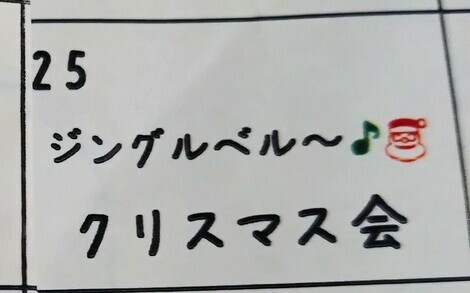 25
ジングルベル～♪🎅
クリスマス会